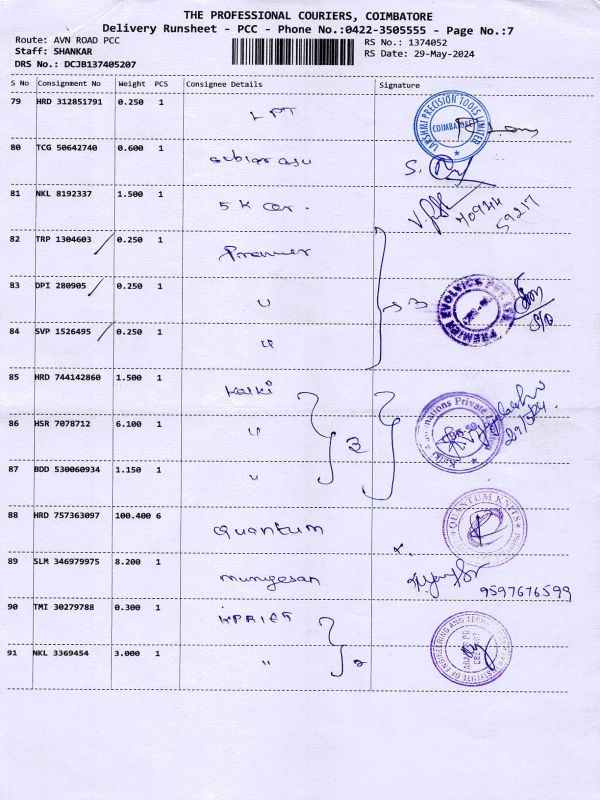 THE PROFESSIONAL COURIERS, COIMBATORE
Delivery Runsheet - PCC - Phone No.:0422-3505555 - Page No.:7
Route: AVN ROAD PCC
RS No.: 1374052
Staff: SHANKAR
RS Date: 29-May-2024
DRS No.: DCJB137405207
S No Consignment No Weight PCS Consignee Details Signature
79 HRD 312851791 0.250 1 LPT
LAKSHMI PRECISION TOOLS LIMITED
COIMBATORE
80 TCG 50642740 0.600 1 S.
81 NKL 8192337 1.500 1 S K Car.
59217
82 TRP 1304603 0.250 1 Premier
83 DPI 280905 0.250 1 " 3
PREMIER EVOLVICS PVT. LTD.
84 SVP 1526495 0.250 1 "
85 HRD 744142860 1.500 1 Kalki
86 HSR 7078712 6.100 1 " 3
Kalki Automations Private Limited
29/5/24
87 BDD 530060934 1.150 1 "
88 HRD 757363097 100.400 6 Quantum
QUANTUM KNITS
89 SLM 346979975 8.200 1 Murugesan
9597676599
90 TMI 30279788 0.300 1 KPRIET
91 NKL 3369454 3.000 1 " 2
INSTITUTE OF ENGINEERING AND TECHNOLOGY